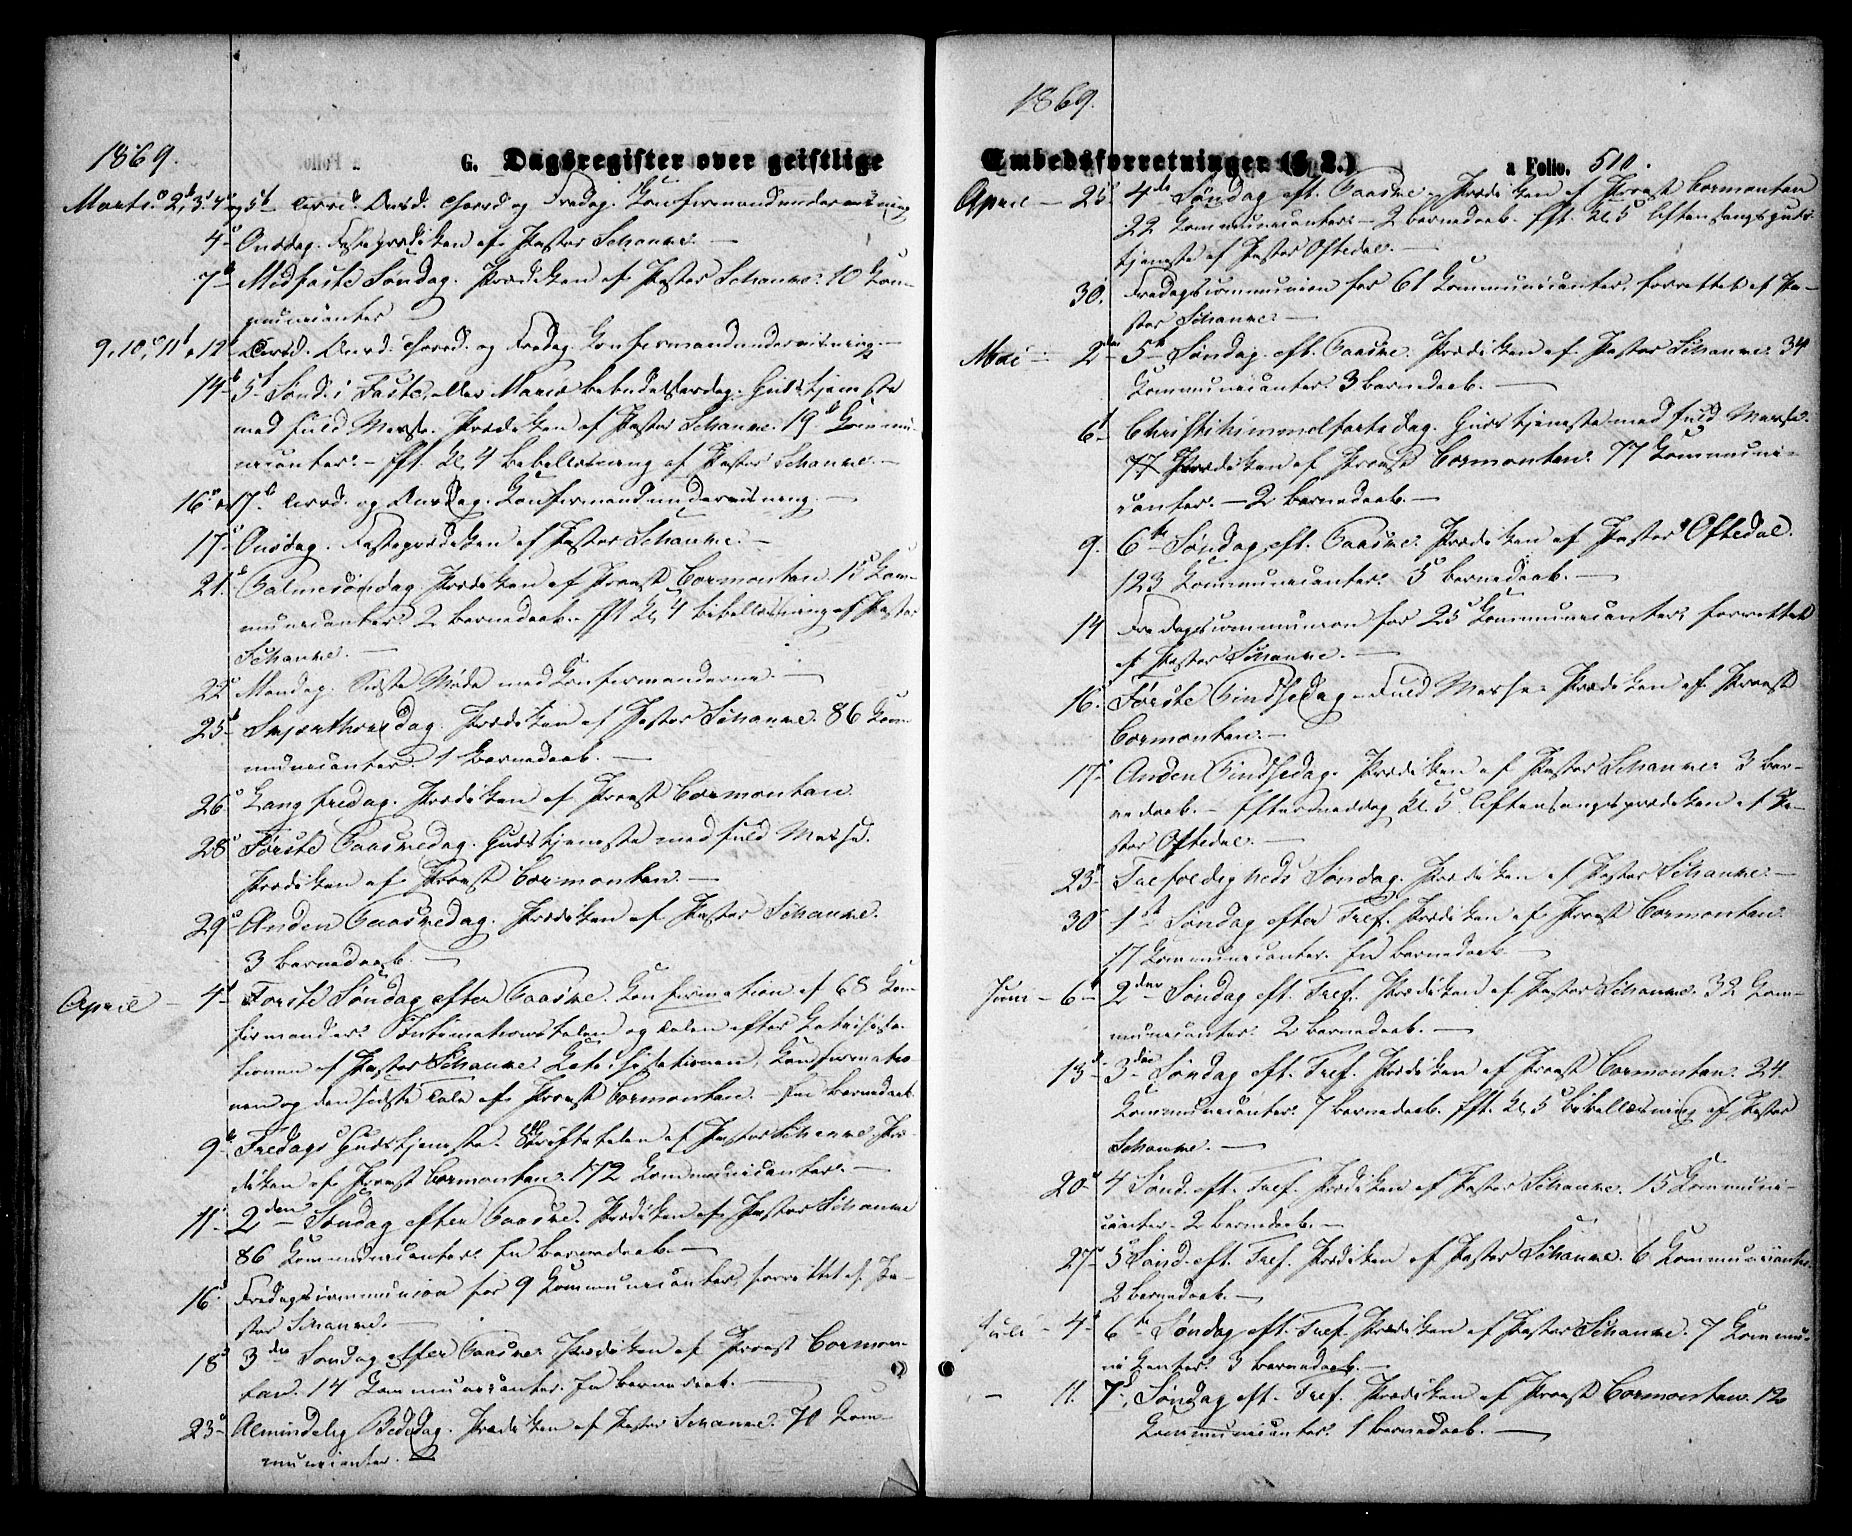 1869.
G. Dagsregister over geistlige
Marts. 2, 3. 4 og 5t Tirsd. Onsd. Thorsd og Fredag. Konfirmandundervisning
4 Onsdag. Fasteprædiken af Pastor Schanke. —
7 Midfaste Søndag. Prædiken af Pastor Schanke. 10 Kom-
municanter
9, 10, 11 o 12 Tirsd. Onsd. Thorsd. og Fredag Konfirmandundervisning. —
14 5t Sønd. i Faste, eller Mariæ Bebudelsesdag. Gudstjeneste
med fuld Messe. Prædiken af Pastor Schanke. 19 Kommu-
nicanter. — Eft. Kl. 4 Bibellæsning af Pastor Schanke. —
16 og 17. Tirsd. og Onsdag. Konfirmandundervisning. —
17 Onsdag. Fasteprædiken af Pastor Schanke. —
21. Palmesøndag Prædiken af Provst Cormontan. 15 Kom-
municanter 2 Barnedaab. Eft Kl 4 bibellæsning af Pastor
Schanke. —
22 Mandag. Sidste Møde med Konfirmanderne. —
25 Skjærthorsdag. Prædiken af Pastor Schanke. 86 Kom-
municanter. 1 Barnedaab. —
26 Langfredag. Prædiken af Provst Cormontan.
28 Første Paaskedag. Gudstjeneste med fuld Messe.
Prædiken af Provst Cormontan. —
29 Anden Paaskedag. Prædiken af Pastor Schanke.
3 Barnedaab. —
April — 4 Første Søndag efter Paaske. Konfirmation af 68 Kon-
firmander. Intimationstalen og Talen efter Katechisa-
tionen af Pastor Schanke. Katechisationen, Konfirmatio-
nen og den sidste Tale af Provst Cormontan. — En Barnedaab
9 Fredags Gudstjeneste. Skriftetalen af Pastor Schanke. Præ-
diken af Provst Cormontan. 172 Kommunicanter. —
11 2den Søndag efter Paaske. Prædiken af Pastor Schanke
86 Kommunicanter. En Barnedaab. —
16 Fredagscommunion for 9 Kommunicanter, forrettet af Pa-
stor Schanke. —
18 3die Søndag efter Paaske. Prædiken af Provst Cormon-
tan. 14 Kommunicanter. En Barnedaab. —
23 Almindelig Bededag. Prædiken af Pastor Schanke. 70 Kom-
municanter. —
1869.
Embedsforretninger (§ 2.) a Folio. 510.
April — 25 4de Søndag eft. Paaske. Prædiken af Provst Cormontan
22 Kommunicanter. — 2 Barnedaab. Eft. Kl. 5 Aftensangsguds-
tjeneste af Pastor Oftedal. —
30. Fredagscommunion for 61 Kommunicanter, forrettet af Pa-
stor Schanke. —
Mai — 2den 5t Søndag eft. Paaske. Prædiken af Pastor Schanke. 34
Kommunicanter. 3 Barnedaab. —
6t Christi himmelfartsdag. Gudstjeneste med fuld Messe.
77 Prædiken af Provst Cormontan. 77 Kommuni-
canter. — 2 Barnedaab. —
9. 6te Søndag eft. Paaske. Prædiken af Pastor Oftedal.
123 Kommunicanter. 5 Barnedaab. —
14 Fredagscommunion for 25 Kommunicanter, forrettet
af Pastor Schanke. —
16. Første Pindsedag. Fuld Messe. Prædiken af Provst
Cormontan. —
17 Anden Pindsedag. Prædiken af Pastor Schanke. 3 Bar-
nedaab. — Eftermiddag Kl. 5 Aftensangsprædiken af Pa-
stor Oftedal. —
23 Trefoldigheds Søndag. Prædiken af Pastor Schanke. —
30 1st Søndag efter Tref. Prædiken af Provst Cormontan.
17 Kommunicanter. En Barnedaab. —
Juni — 6 2den Søndag eft. Tref. Prædiken af Pastor Schanke. 32 Kom-
municanter. 2 Barnedaab. —
13 3die Søndag eft. Tref. Prædiken af Provst Cormontan. 24.
Kommunicanter. 7 Barnedaab. Eft. Kl. 5 Bibellæsning af Pastor
Schanke. —
20 4 Sønd. eft. Tref. Prædiken af Pastor Schanke. 15 Kommuni-
canter. 2 Barnedaab. —
27 5 Sønd. eft. Tref. Prædiken af Pastor Schanke. 6 Kommunicanter
2 Barnedaab. —
Juli — 4 6te Søndag eft. Tref. Prædiken af Pastor Schanke. 7 Kommu-
nicanter. 3 Barnedaab. —
— 11. 7. Søndag eft. Tref. Prædiken af Provst Cormontan. 12
Kommunicanter. 1 Barnedaab. —